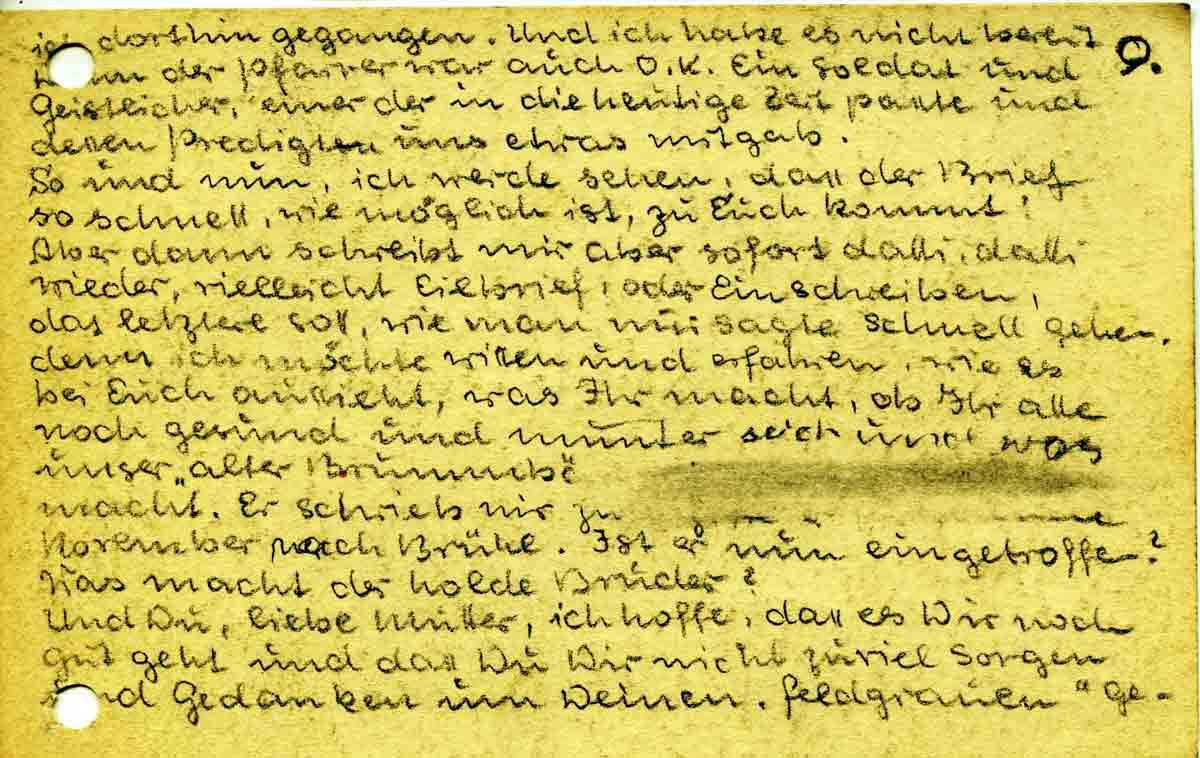 ich dorthin gegangen. Und ich habe es nicht bereut
9.
denn der Pfarrer war auch O.K. Ein Soldat und
Geistlicher, einer der in die heutige Zeit passte und
dessen Predigten uns etwas mitgab.
So und nun, ich werde sehen, dass der Brief
so schnell, wie möglich ist, zu Euch kommt!
Aber dann schreibt mir aber sofort dalli, dalli
wieder, vielleicht Eilbrief, oder Einschreiben,
das letztere soll, wie man mir sagte schnell gehen.
denn ich möchte wissen und erfahren, wie es
bei Euch aussieht, was Ihr macht, ob Ihr alle
noch gesund und munter seid und was
unser „alter
macht. Er schrieb mir zu
November nach Brühl. Ist er nun eingetroffen?
Was macht der holde Bruder?
Und Du, liebe Mutter, ich hoffe, dass es Dir noch
gut geht und dass Du Dir nicht zuviel Sorgen
und Gedanken um Deinen „feldgrauen" ge-